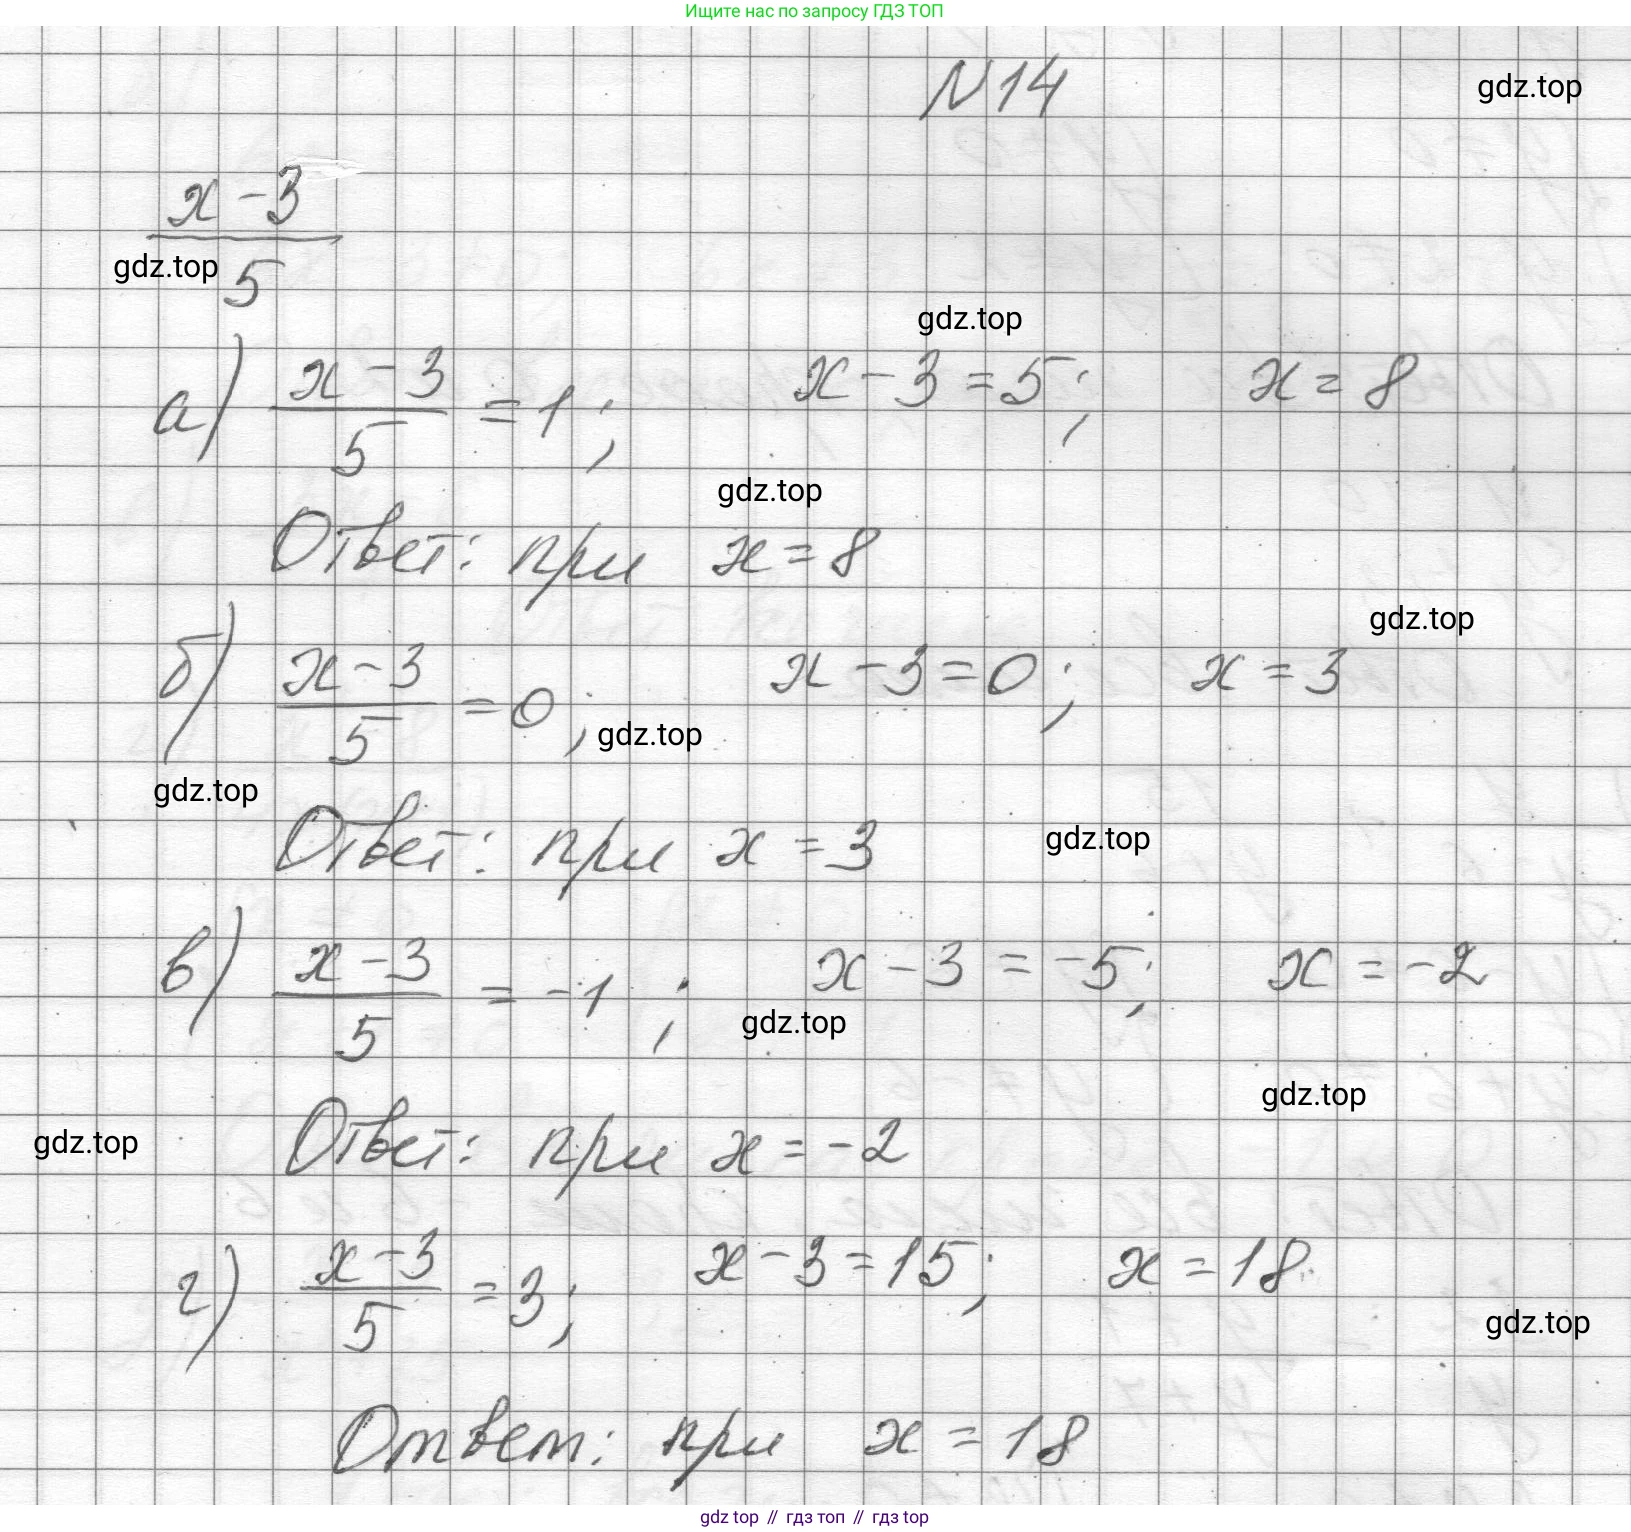 Ищите нас по запросу ГДЗ ТОП
N14
gdz.top
x-3
gdz.top
5
gdz.top
а) x-3/5 = 1; x-3=5; x=8
gdz.top
Ответ: при x=8
gdz.top
б) x-3/5 = 0; x-3=0; x=3
gdz.top
gdz.top
Ответ: при x=3
gdz.top
в) x-3/5 = -1; x-3=-5; x=-2
gdz.top
gdz.top
Ответ: при x=-2
gdz.top
г) x-3/5 = 3; x-3=15; x=18
gdz.top
Ответ: при x=18
gdz top // гдз топ // гдз top